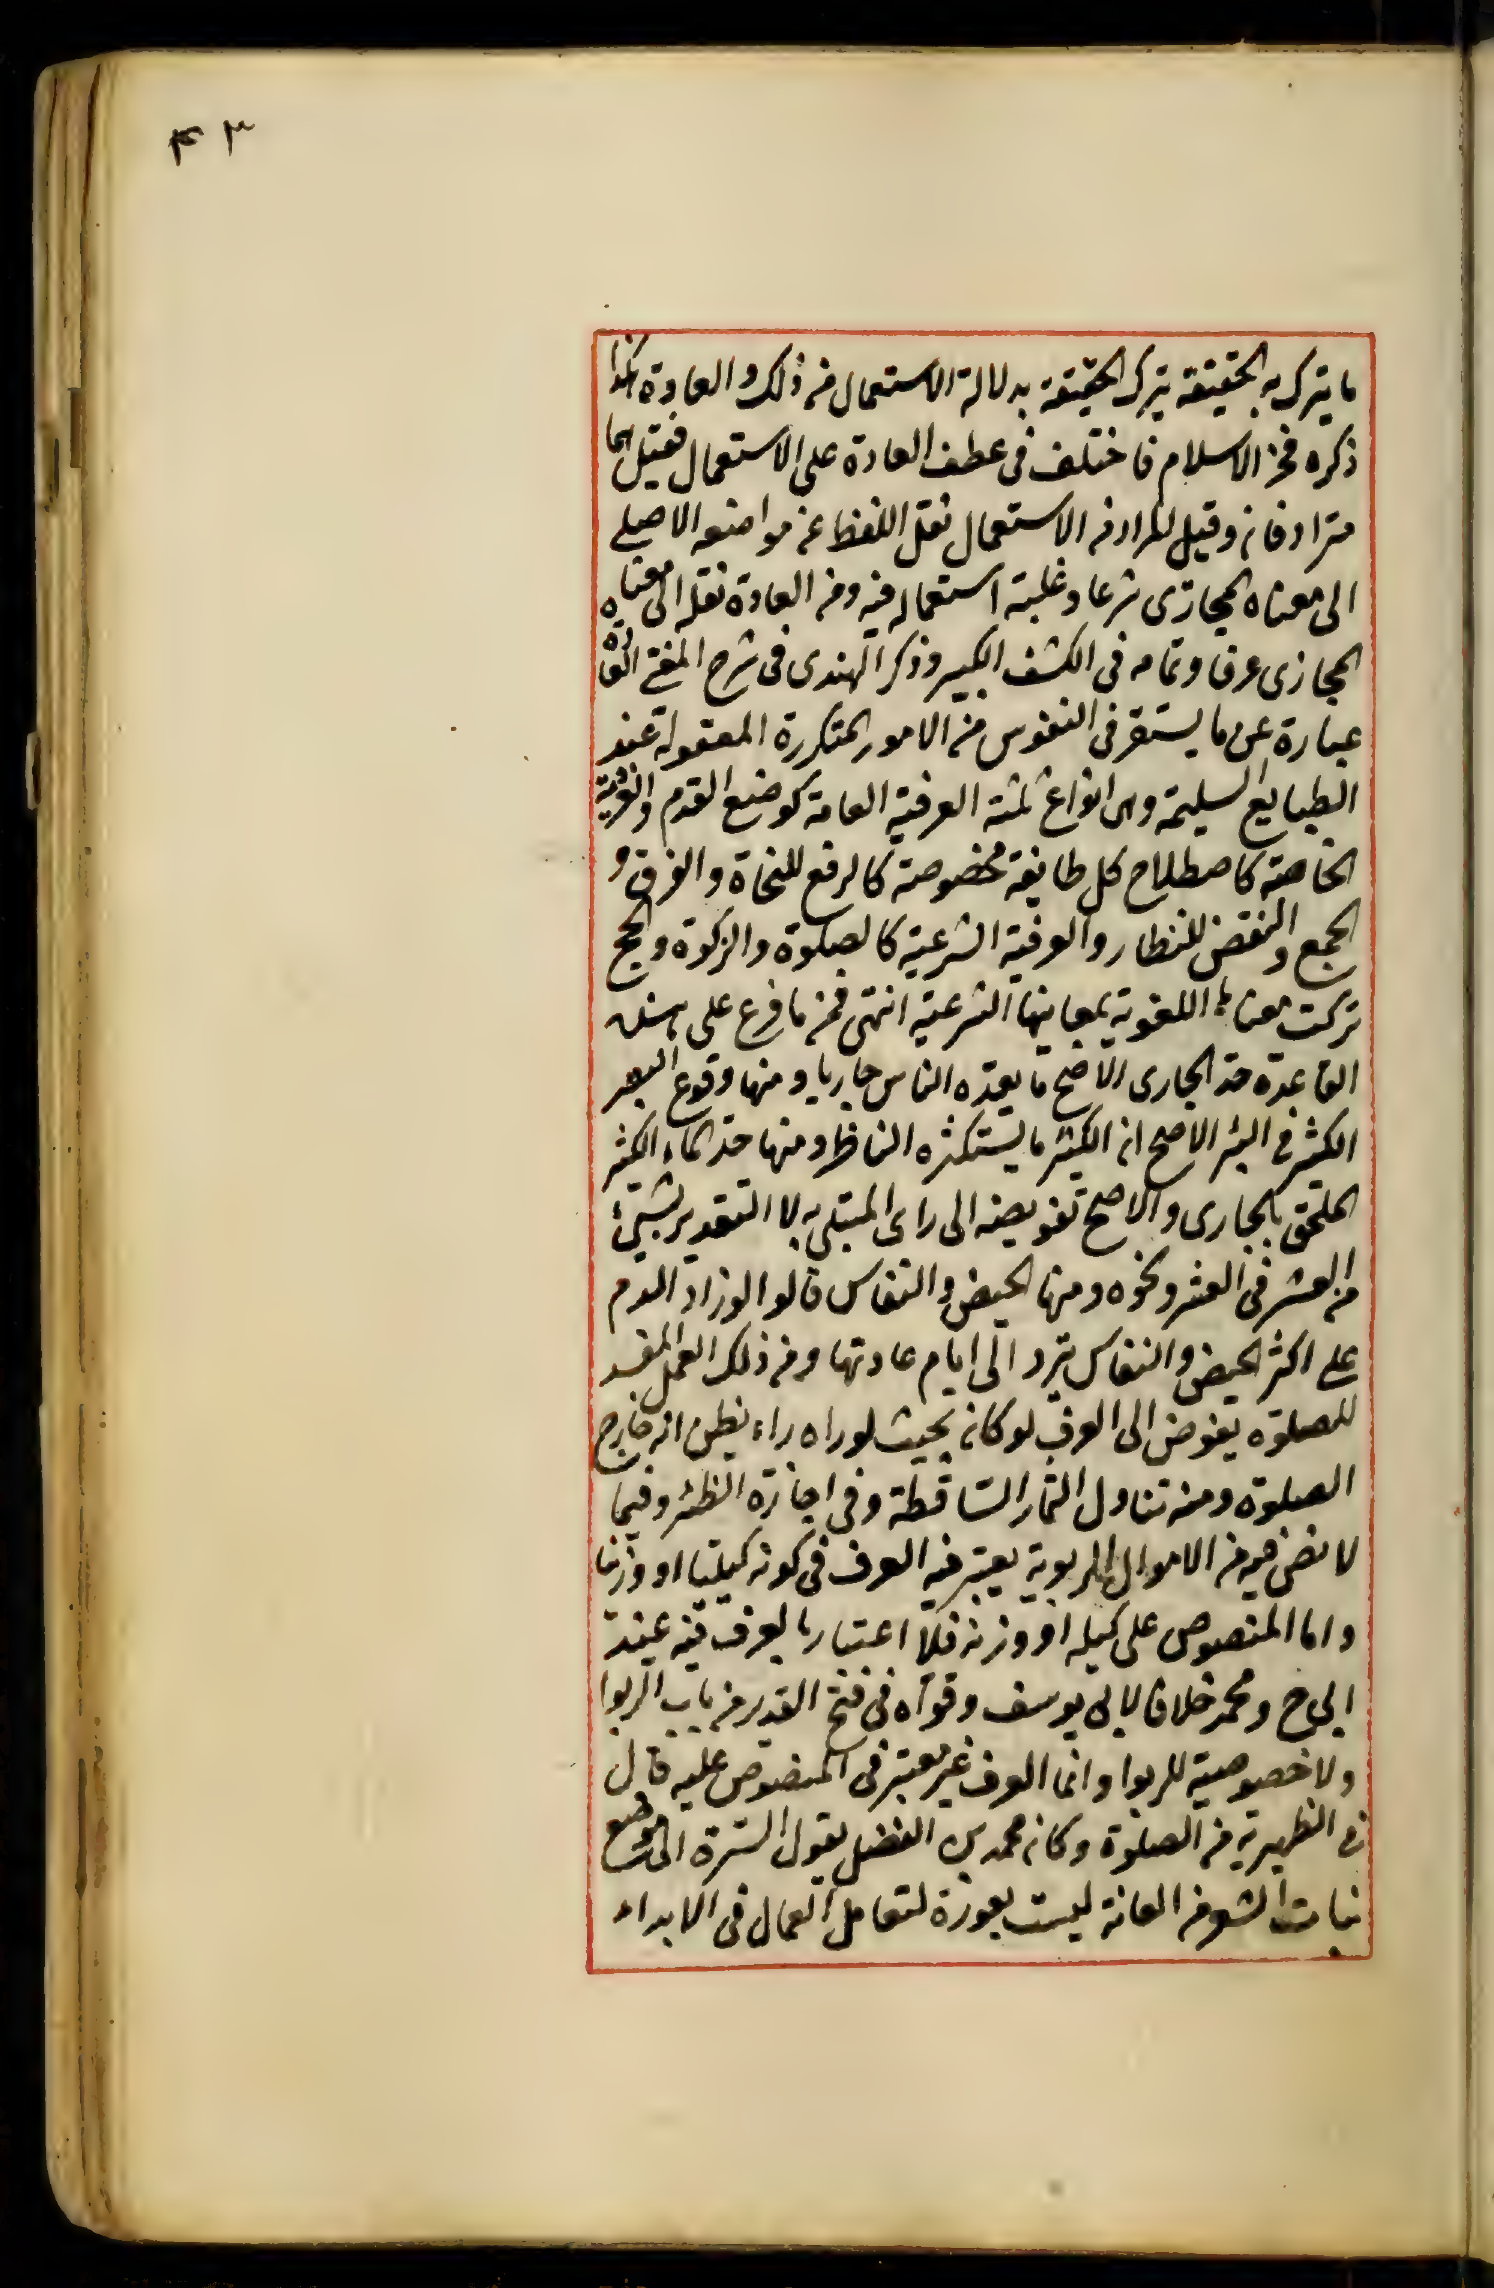 ۴۳
ما يترك به الحقيقة يترك الحقيقة بدلالة الاستعمال من ذلك والعادة كذا
ذكره فخر الاسلام فاختلف فى عطف العادة على الاستعمال فقيل هما
مترادفان وقيل المراد من الاستعمال نقل اللفظ عن مواضعه الاصلى
الى معناه المجازى شرعا وغلبة استعماله فيه ومن العادة نقله الى معناه
المجازى عرفا وتمامه فى الكشف الكبير وذكر الهندى فى شرح المغنى العادة
عبارة عن ما يستقر فى النفوس من الامور المتكررة المعقولة عند
الطبايع السليمة وهى انواع ثلثة العرفية العامة كوضع القدم والعرفية
الخاصة كاصطلاح كل طايفة مخصوصة كالرفع للنحاة والفرق و
الجمع والنقض للنظار والعرفية الشرعية كالصلوة والزكوة والحج
تركت معناها اللغوية بمعاينها الشرعية انتهى فمن ما فرع على هذه
القاعدة حد الجارى الاصح ما يعده الناس جاريا ومنها وقوع البعر
الكثير فى البئر الاصح ان الكثير ما يستكثره الناظر ومنها حد الماء الكثير
الملحق بالجارى والاصح تفويضه الى راى المبتلى به لا التقدير بشئ
من العشر فى العشر ونحوه ومنها الحيض والنفاس قالوا لو زاد الدم
على اكثر الحيض والنفاس يرد الى ايام عادتها ومن ذلك العمل المفسد
للصلوة يفوض الى العرف لو كان بحيث لو راه راء يظن انه خارج
الصلوة ومنه تناول الثمار الساقطة وفى اجازة الظئر وفيما
لا نص فيه من الاموال الربوية يعتبر فيه العرف فى كونه كيليا او وزنيا
واما المنصوص على كيله او وزنه فلا اعتبار بالعرف فيه عند
ابى ح ومحمد خلافا لابى يوسف وقواه فى فتح القدير من باب الربوا
ولا خصوصية للربوا وانما العرف غير معتبر فى المنصوص عليه قال
فى الظهيرية من الصلوة وكان محمد بن الفضل يقول السرة الى موضع
نبات الشعر من العانة ليست بعورة لتعامل العمال فى الابداء